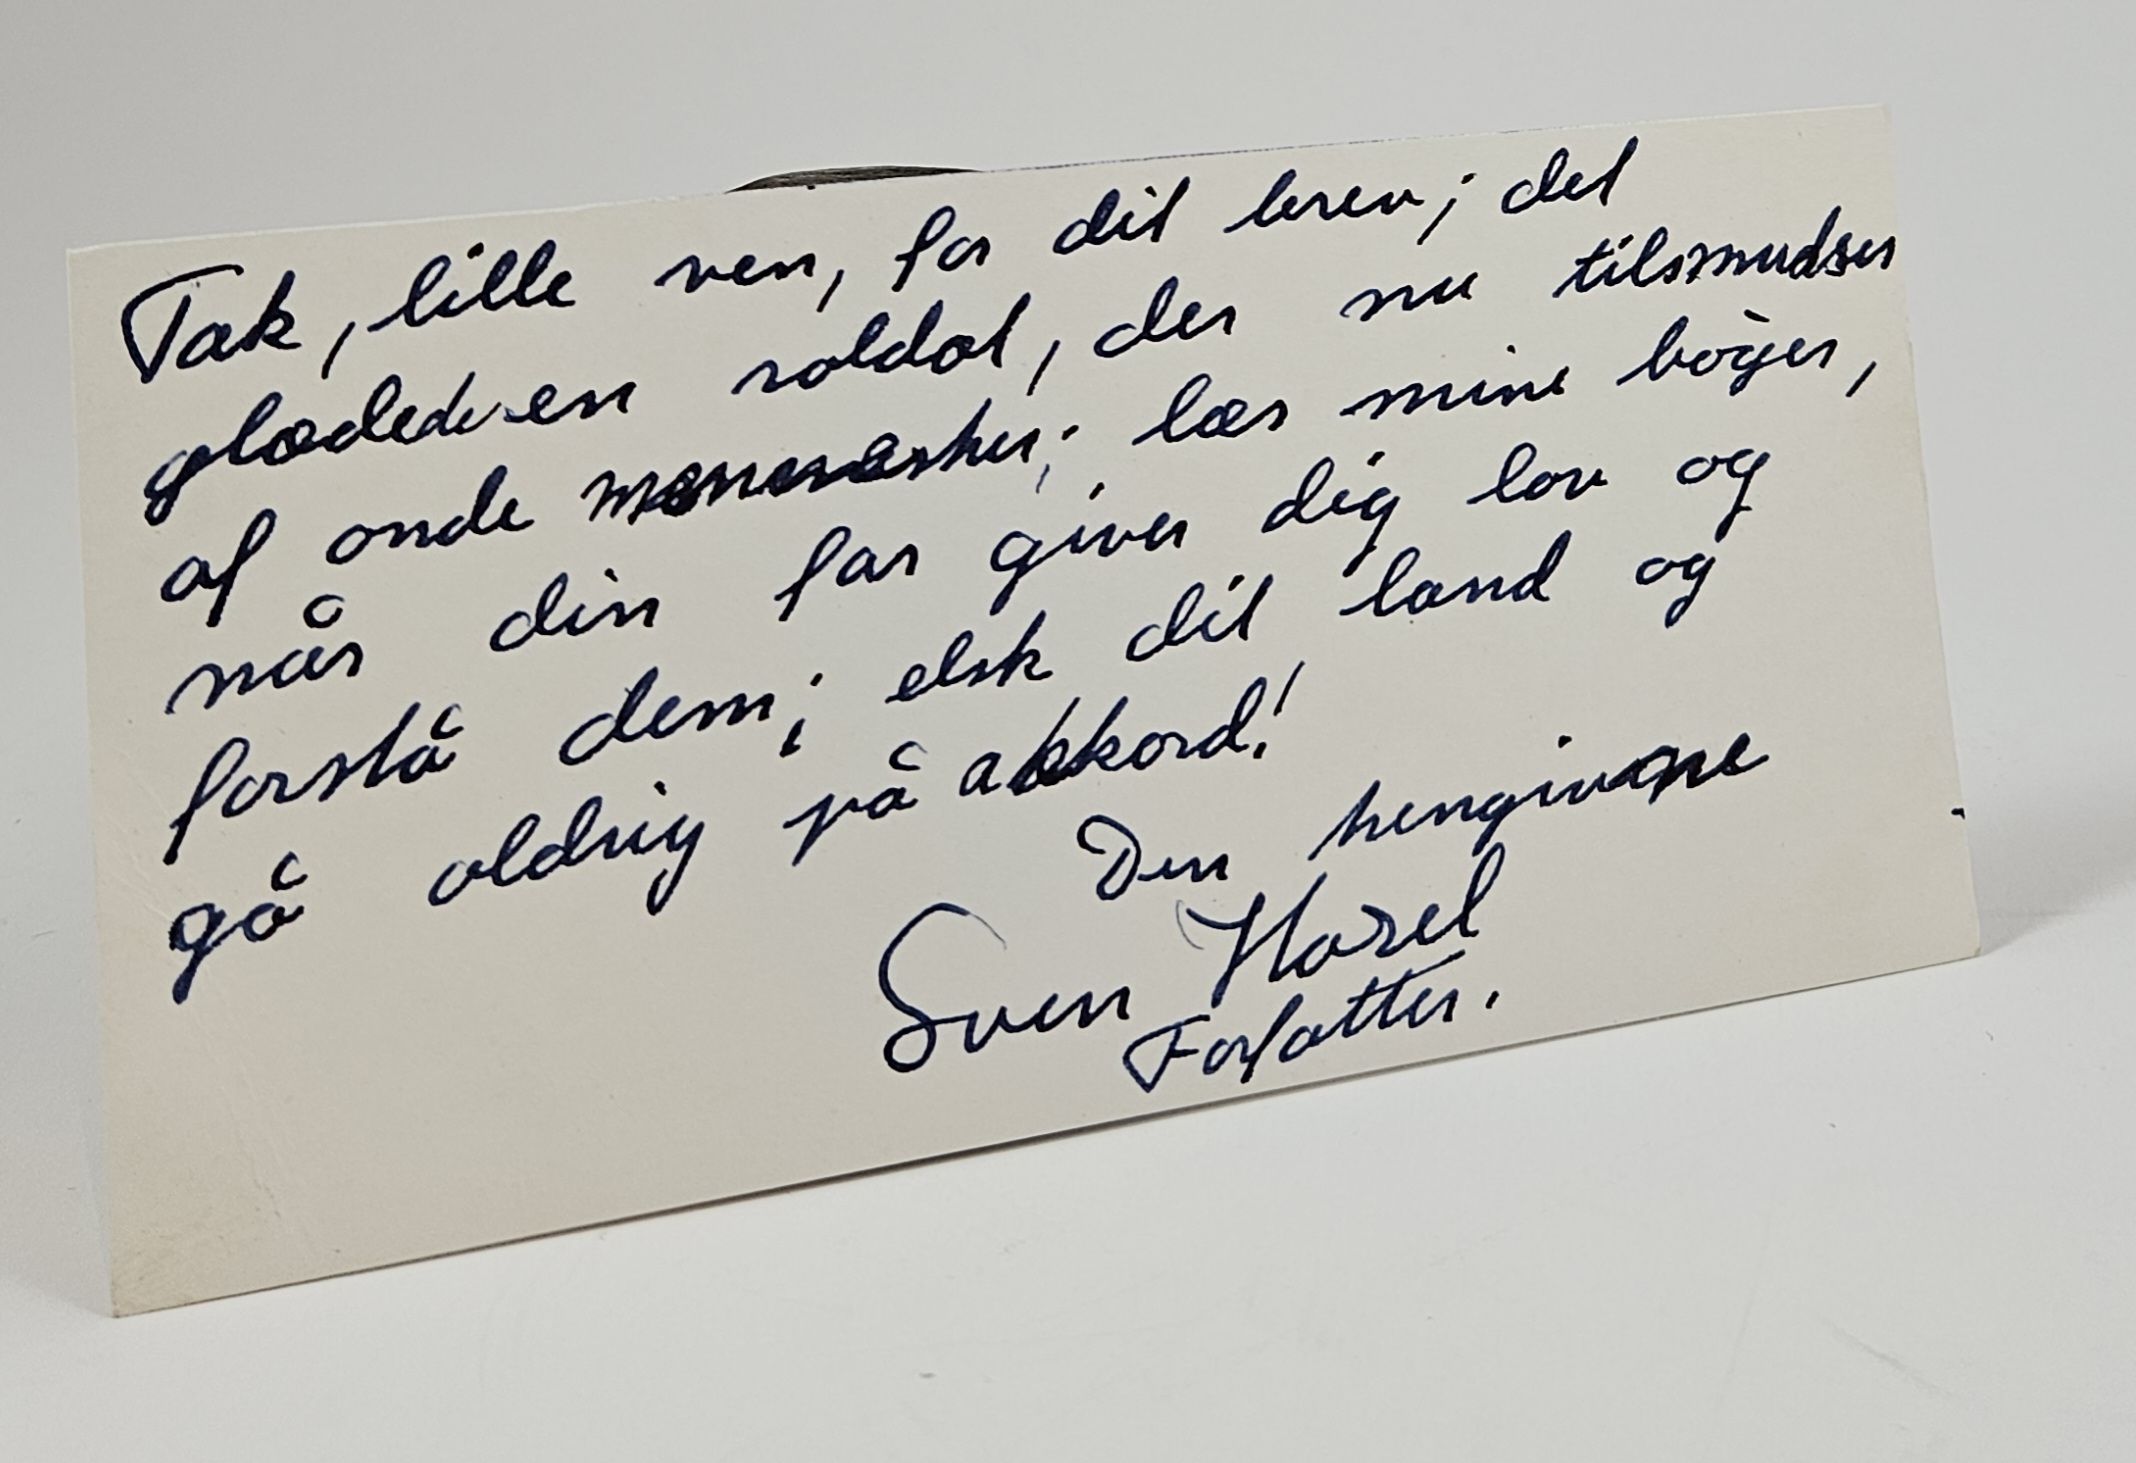 Tak, lille ven, for dit brev; det
glædede en soldat, der nu tilsmudses
af onde mennesker; læs mine bøger,
når din far giver dig lov og
forstå dem; elsk dit land og
gå aldrig på akkord!
Den hengivne
Sven Hazel
Forfatter.